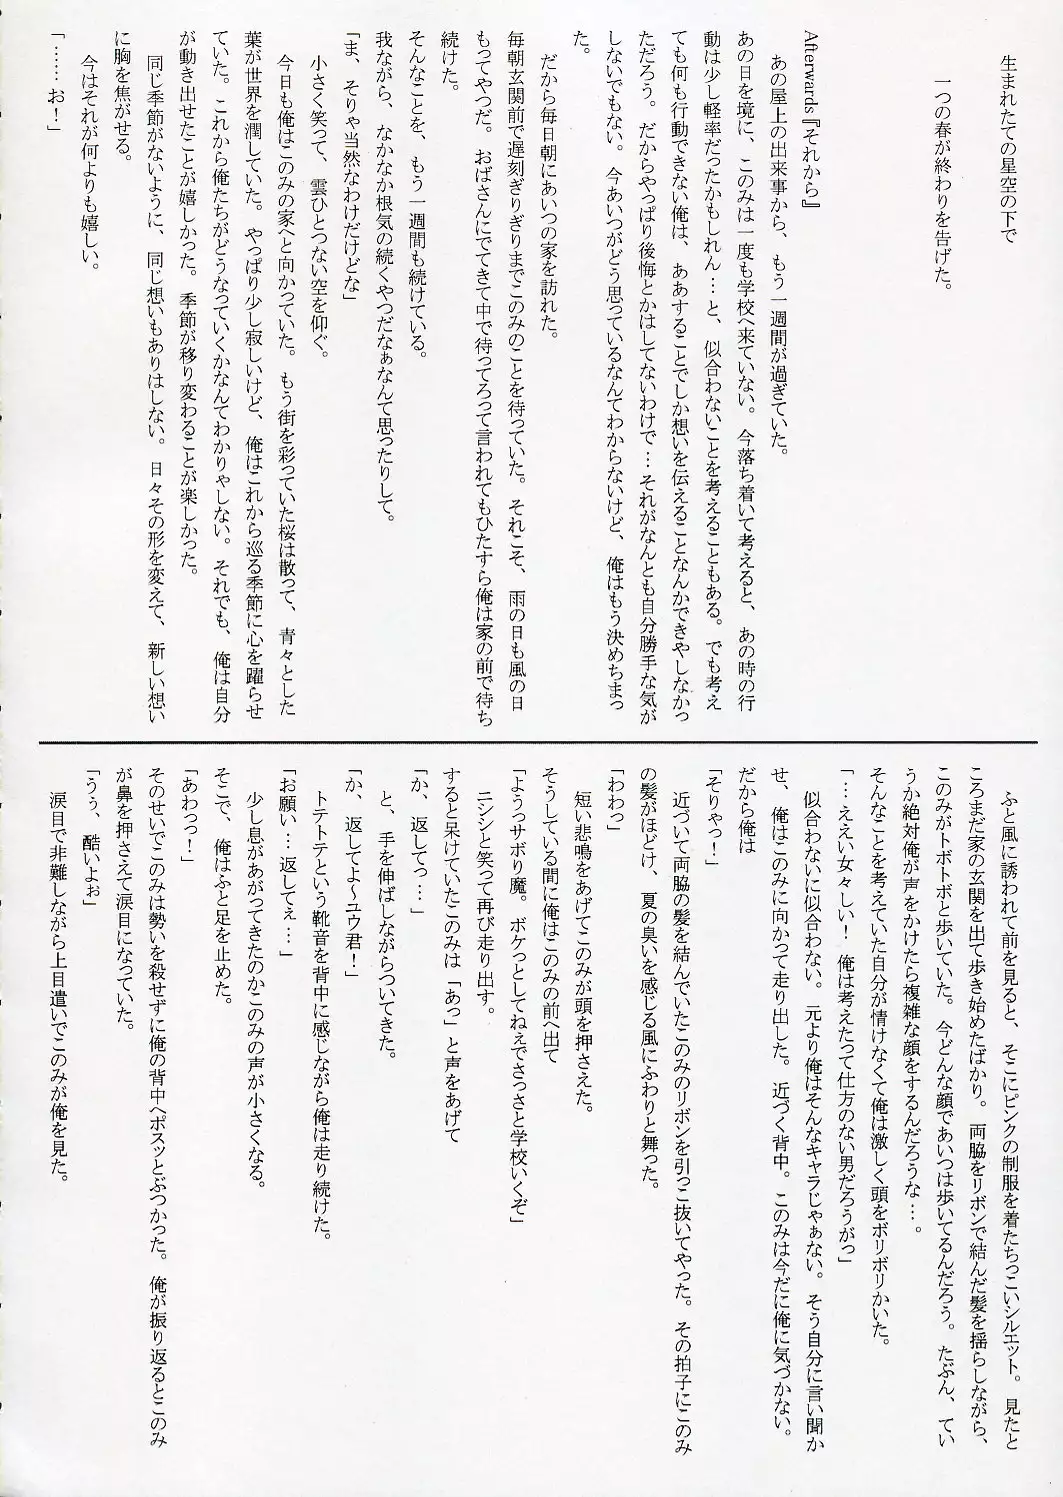 生まれたての星空の下で
一つの春が終わりを告げた。
Afterwards『それから』
あの屋上の出来事から、もう一週間が過ぎていた。
あの日を境に、このみは一度も学校へ来ていない。今落ち着いて考えると、あの時の行
動は少し軽率だったかもしれん…と、似合わないことを考えることもある。でも考え
ても何も行動できない俺は、ああすることでしか想いを伝えることなんかできやしなかっ
ただろう。だからやっぱり後悔とかはしてないわけで…それがなんとも自分勝手な気が
しないでもない。今あいつがどう思っているなんてわからないけど、俺はもう決めちまっ
た。
だから毎日朝にあいつの家を訪れた。
毎朝玄関前で遅刻ぎりぎりまでこのみのことを待っていた。それこそ、雨の日も風の日
もってやつだ。おばさんにでてきて中で待ってろって言われてもひたすら俺は家の前で待ち
続けた。
そんなことを、もう一週間も続けている。
我ながら、なかなか根気の続くやつだなぁなんて思ったりして。
「ま、そりゃ当然なわけだけどな」
小さく笑って、雲ひとつない空を仰ぐ。
今日も俺はこのみの家へと向かっていた。もう街を彩っていた桜は散って、青々とした
葉が世界を潤していた。やっぱり少し寂しいけど、俺はこれから巡る季節に心を躍らせ
ていた。これから俺たちがどうなっていくかなんてわかりゃしない。それでも、俺は自分
が動き出せたことが嬉しかった。季節が移り変わることが楽しかった。
同じ季節がないように、同じ想いもありはしない。日々その形を変えて、新しい想い
に胸を焦がせる。
今はそれが何よりも嬉しい。
「……お！」
ふと風に誘われて前を見ると、そこにピンクの制服を着たちっこいシルエット。見たと
ころまだ家の玄関を出て歩き始めたばかり。両脇をリボンで結んだ髪を揺らしながら、
このみがトボトボと歩いていた。今どんな顔であいつは歩いてるんだろう。たぶん、てい
うか絶対俺が声をかけたら複雑な顔をするんだろうな…。
そんなことを考えていた自分が情けなくて俺は激しく頭をボリボリかいた。
「…ええい女々しい！俺は考えたって仕方のない男だろうがっ」
似合わないに似合わない。元より俺はそんなキャラじゃぁない。そう自分に言い聞か
せ、俺はこのみに向かって走り出した。近づく背中。このみは今だに俺に気づかない。
だから俺は
「そりゃっ！」
近づいて両脇の髪を結んでいたこのみのリボンを引っこ抜いてやった。その拍子にこのみ
の髪がほどけ、夏の臭いを感じる風にふわりと舞った。
「わわっ」
短い悲鳴をあげてこのみが頭を押さえた。
そうしている間に俺はこのみの前へ出て
「ようっサボり魔。ボケっとしてねえでさっさと学校いくぞ」
ニシシと笑って再び走り出す。
すると呆けていたこのみは「あっ」と声をあげて
「か、返してっ…」
と、手を伸ばしながらついてきた。
「か、返してよ～ユウ君！」
トテトテという靴音を背中に感じながら俺は走り続けた。
「お願い…返してぇ…」
少し息があがってきたのかこのみの声が小さくなる。
そこで、俺はふと足を止めた。
「あわっっ！」
そのせいでこのみは勢いを殺せずに俺の背中へポスッとぶつかった。俺が振り返るとこのみ
が鼻を押さえて涙目になっていた。
「うぅ、酷いよぉ」
涙目で非難しながら上目遣いでこのみが俺を見た。